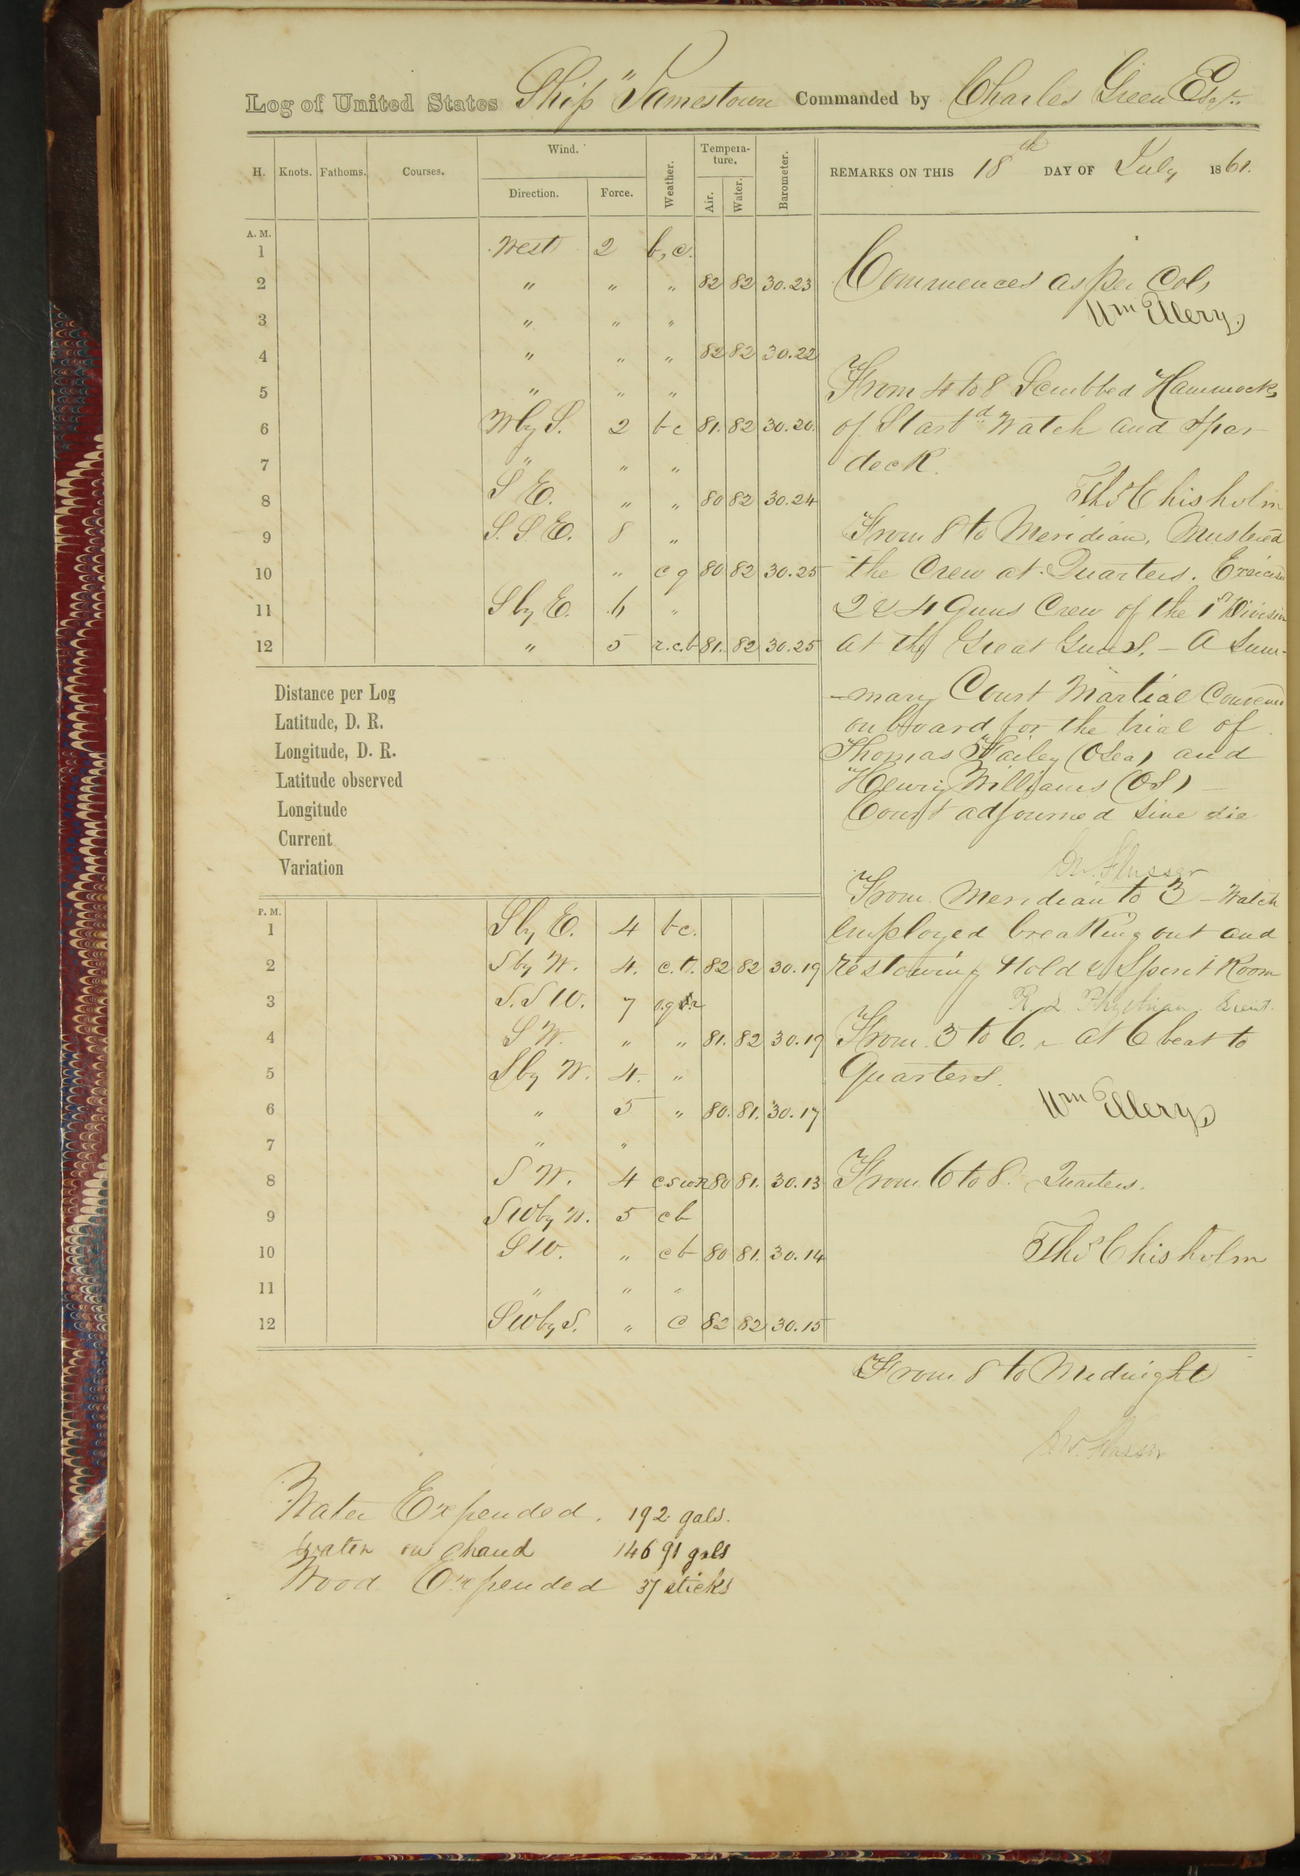 Log of United States Ship "Jamestown Commanded by Charles Green Esqr.
H. Knots. Fathoms. Courses. Wind. Direction. Force. Weather. Tempera-ture. Air. Water. Barometer. REMARKS ON THIS 18th DAY OF July 1861.
A. M.
1 West 2 b,c.
2 " " " 82 82 30.23
3 " " "
4 " " " 82 82 30.22
5 " " "
6 W by S. 2 b c 81. 82 30.20.
7 " " "
8 S E. " " 80 82 30.24
9 S. S E. 8 "
10 " c q 80 82 30.25
11 S by E. 6 "
12 " 5 r.c.b 81. 82 30.25
Commences as per Cols
Wm Ellery.
From 4 to 8 Scrubbed Hammocks
of Starbd Watch and Spar
deck.
Thos Chisholm
From 8 to Meridian, Mustered
the Crew at Quarters. Exercised
2 & 4 Guns Crew of the 1st Division
at the Great Guns. – A Sum-
-mary Court Martial Convened
on board for the trial of
Thomas Farley (OSea) and
Henry Williams (OS) –
Court adjourned sine die
Distance per Log
Latitude, D. R.
Longitude, D. R.
Latitude observed
Longitude
Current
Variation
P. M.
1 S by E. 4 b c.
2 S by W. 4. c.t. 82 82 30.19
3 S. S W. 7
4 S W. " " 81. 82 30.19
5 S by W. 4. "
6 " 5 " 80. 81. 30.17
7 " "
8 S W. 4 80 81. 30.13
9 SW by W. 5 c b
10 SW. " c b 80 81. 30.14
11 " " "
12 SW by S. " c 82 82 30.15
From Meridian to 3 – Watch
employed breaking out and
restowing Hold & Spirit Room
From 3 to 6. – at 6 beat to
Quarters.
Wm Ellery
From 6 to 8. Quarters.
Thos Chisholm
From 8 to Midnight
Water Expended. 192 gals.
Water on hand 14691 gals
Wood Expended 37 sticks